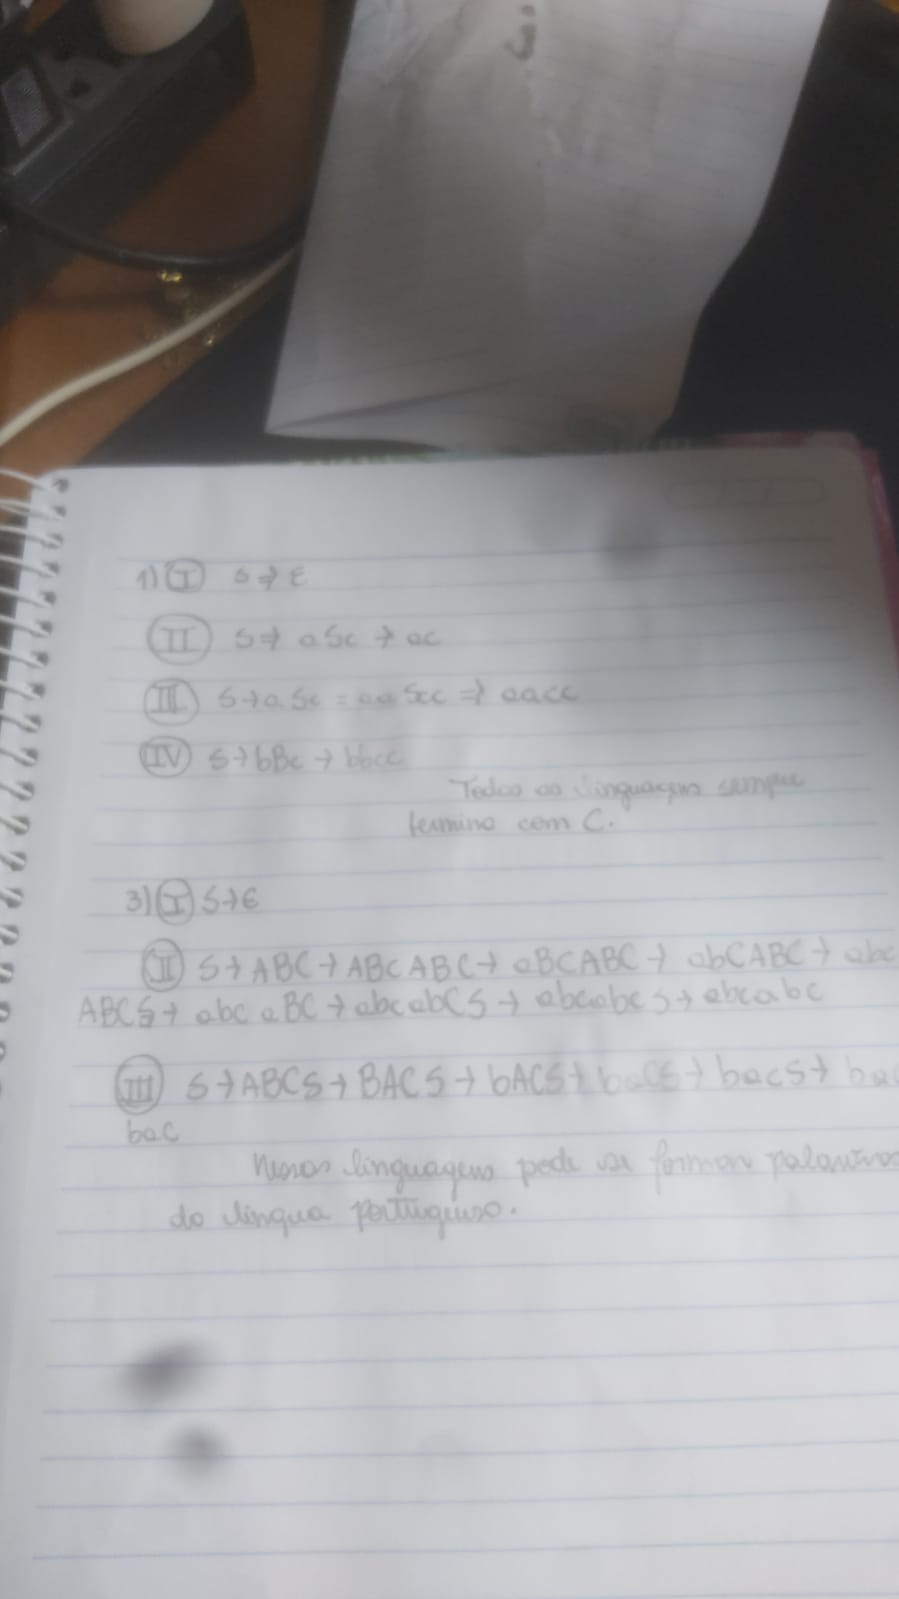 1) I S → ε
II S → aSc → ac
III S → aSc = aaScc → aacc
IV S → bBc → bbcc
Todas as linguagens sempre
termino com C.
3) I S → ε
II S → ABC → ABCABC → aBCABC → abCABC → abc
ABCS → abcaBC → abcabCS → abcabcS → abcabc
III S → ABCS → BACS → bACS → baCS → bacS → bac
bac
linguagens pode se formar palavras
da língua